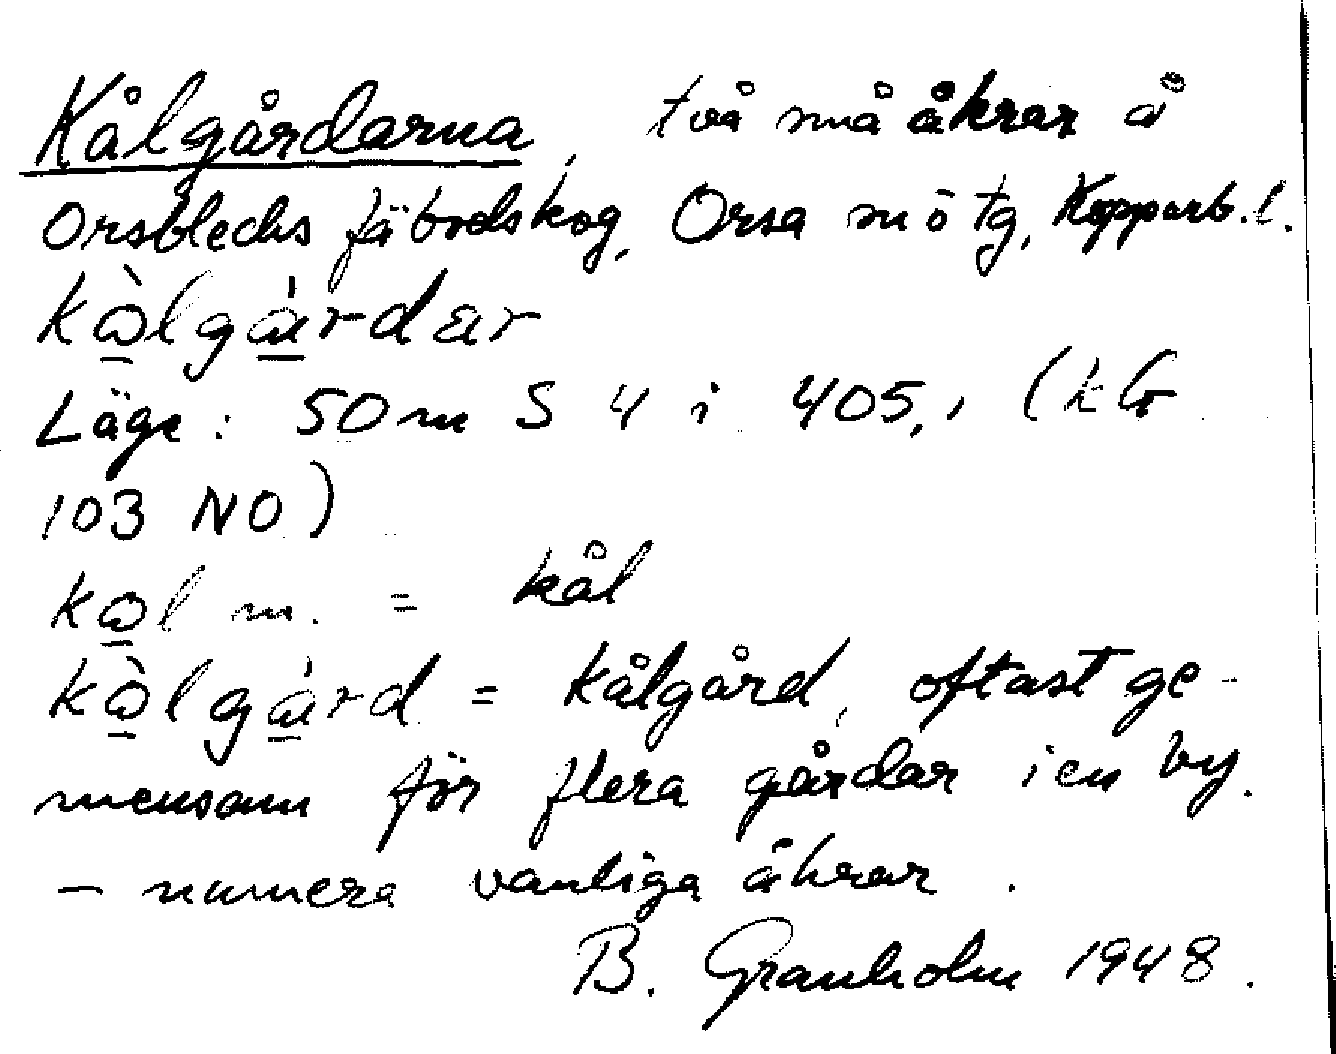 Kålgårdarna, två små åkrar å
Orsblecks fäbodskog, Orsa sn o tg, Kopparb. l.
kàlgárdar
Läge: 50 m S 4 i 405,1 (kbl
103 NO)
kal m. = kål
kàlgárd = kålgård, oftast ge-
mensam för flera gårdar i en by.
– numera vanliga åkrar.
B. Granholm 1948.